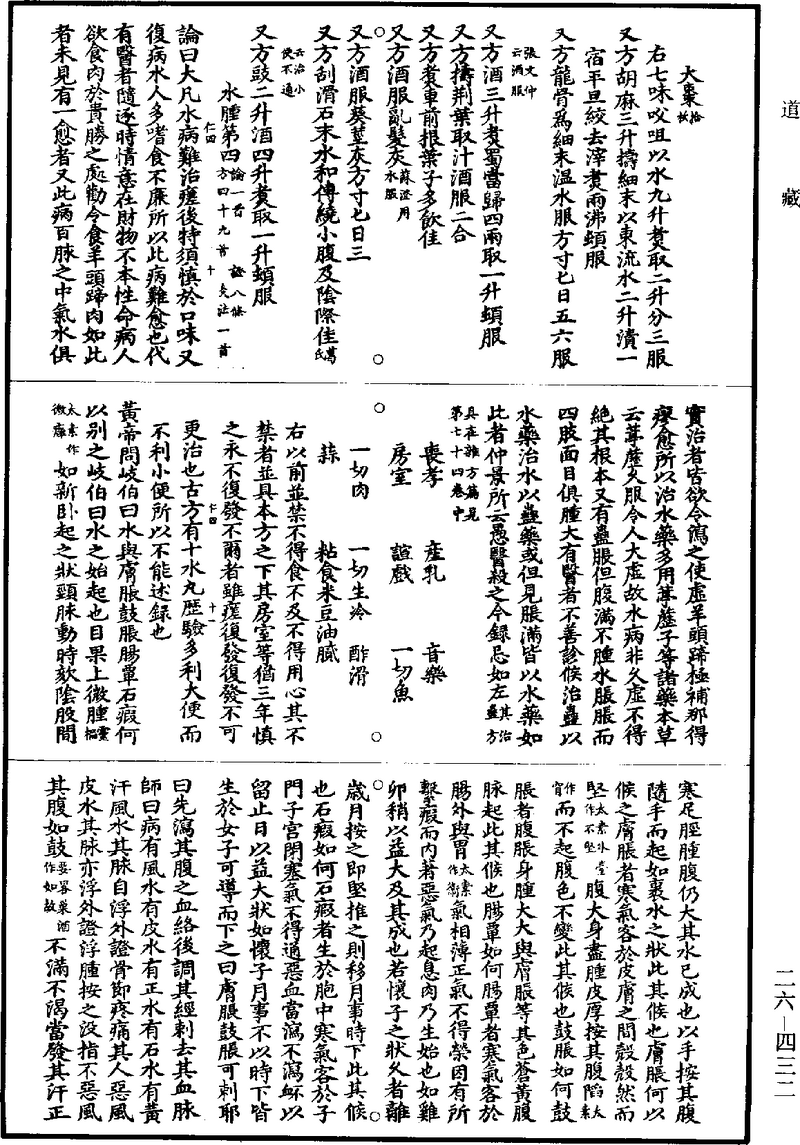 道藏
大棗拾枚
右七味㕮咀以水九升煮取二升分三服
又方胡麻三升擣細末以東流水二升漬一
宿平旦絞去滓煮兩沸頓服
又方龍骨為細末温水服方寸匕日五六服
張文仲云酒服
又方酒三升煮蜀當歸四兩取一升頓服
又方擣荆葉取汁酒服二合
又方煮車前根葉子多飲佳
又方酒服亂髮灰蘇澄用水服
又方酒服葵莖灰方寸匕日三
又方刮滑石末水和傅繞小腹及陰際佳葛氏
云治小便不通
又方豉二升酒四升煮取一升頓服
水腫第四論一首 證八條 方四十九首 灸法一首
仁四 十
論曰大凡水病難治瘥後特須慎於口味又
復病水人多嗜食不廉所以此病難愈也代
有醫者隨逐時情意在財物不本性命病人
欲食肉於貴勝之處勸令食羊頭蹄肉如此
者未見有一愈者又此病百脉之中氣水俱
實治者皆欲令瀉之使虛羊頭蹄極補那得
瘳愈所以治水藥多用葶藶子等諸藥本草
云葶藶久服令人大虛故水病非久虛不得
絕其根本又有蠱脹但腹滿不腫水脹脹而
四肢面目俱腫大有醫者不善診候治蠱以
水藥治水以蠱藥或但見脹滿皆以水藥如
此者仲景所云愚醫殺之今錄忌如左其治蠱方
具在雜方篇見第七十四卷中
喪孝 產乳 音樂
房室 諠戲 一切魚
一切肉 一切生冷 酢滑
蒜 粘食米豆油膩
右以前並禁不得食不及不得用心其不
禁者並具本方之下其房室等猶三年慎
之永不復發不爾者雖瘥復發復發不可
仁四 十一
更治也古方有十水丸歷驗多利大便而
不利小便所以不能述錄也
黃帝問岐伯曰水與膚脹鼓脹腸覃石瘕何
以別之岐伯曰水之始起也目果上微腫靈樞
太素作微癰如新卧起之狀頸脉動時欬陰股間
寒足脛腫腹仍大其水已成也以手按其腹
隨手而起如裹水之狀此其候也膚脹何以
候之膚脹者寒氣客於皮膚之間殼殼然而
堅太素外臺堅作不堅腹大身盡腫皮厚按其腹陷太素
作窅而不起腹色不變此其候也鼓脹如何鼓
脹者腹脹身腫大大與膚脹等其色蒼黃腹
脉起此其候也腸覃如何腸覃者寒氣客於
腸外與胃太素作衛氣相薄正氣不得榮因有所
繫瘕而内著惡氣乃起息肉乃生始也如雞
卵稍以益大及其成也若懷子之狀久者離
歲月按之即堅推之則移月事時下此其候
也石瘕如何石瘕者生於胞中寒氣客於子
門子宫閉塞氣不得通惡血當瀉不瀉衃以
留止日以益大狀如懷子月事不以時下皆
生於女子可導而下之曰膚脹鼓脹可刺耶
曰先瀉其腹之血絡後調其經刺去其血脉
師曰病有風水有皮水有正水有石水有黃
汗風水其脉自浮外證骨節疼痛其人惡風
皮水其脉亦浮外證浮腫按之没指不惡風
其腹如鼓要畧巢源作如故不滿不渴當發其汗正
二六—四三二